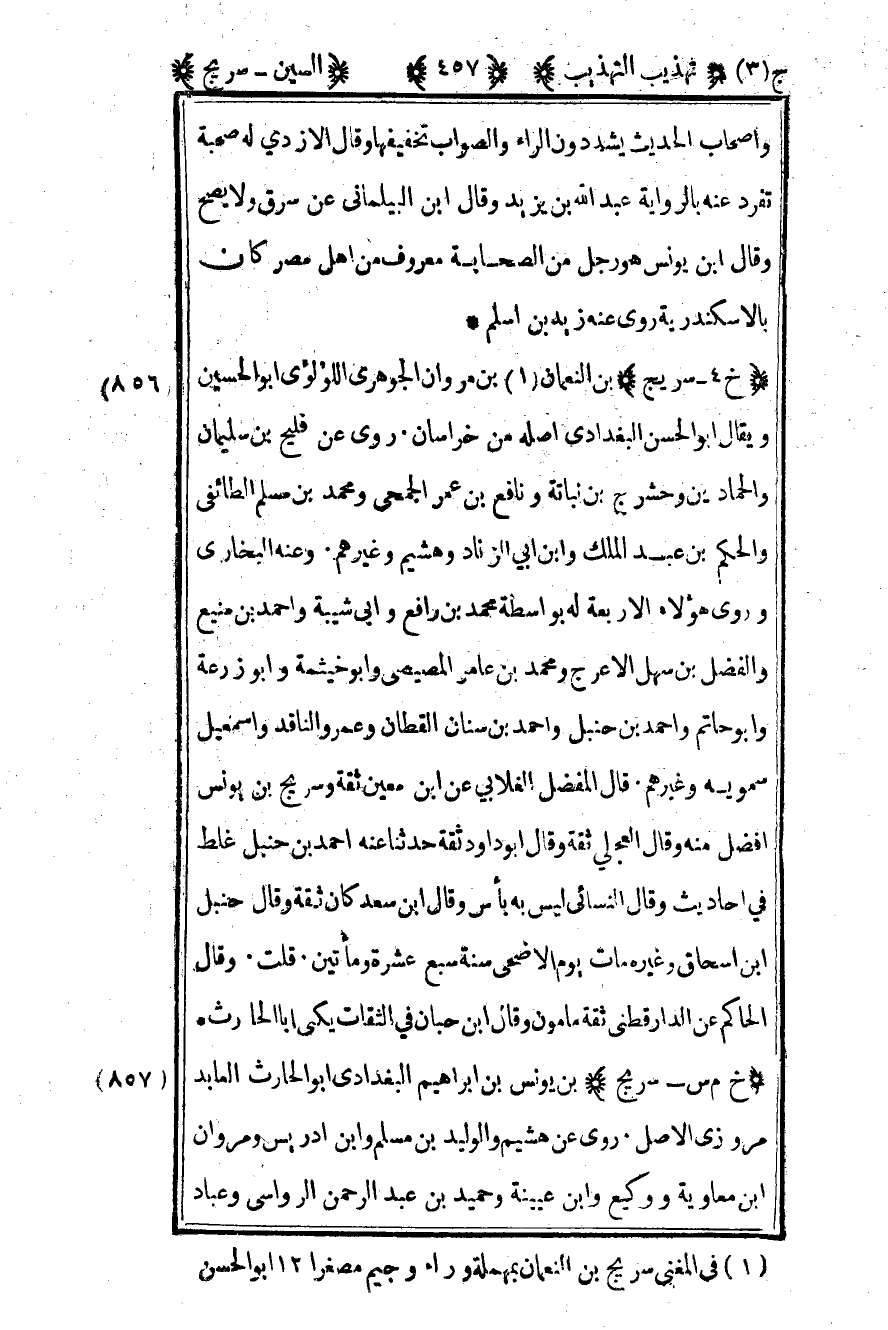 ج(٣) ﴿ تهذيب التهذيب ﴾ ﴿ ٤٥٧ ﴾ ﴿ السين - سريج ﴾
واصحاب الحديث يشددون الراء والصواب تخفيفها وقال الازدي له صحبة
تفرد عنه بالرواية عبد الله بن يزيد وقال ابن البيلمانى عن سرق ولا يصح
وقال ابن يونس هو رجل من الصحابة معروف من اهل مصر كان
بالاسكندرية روى عنه زيد بن اسلم *
﴿ خ ٤ - سريج ﴾ بن النعمان (١) بن مروان الجوهرى اللؤلؤى ابو الحسين (٨٥٦)
ويقال ابو الحسن البغدادى اصله من خراسان . روى عن فليح بن سليمان
والحمادين وحشرج بن نباتة ونافع بن عمر الجمحى ومحمد بن مسلم الطائفى
والحكم بن عبد الملك وابن ابى الزناد وهشيم وغيرهم . وعنه البخارى
وروى هؤلاء الاربعة له بواسطة محمد بن رافع وابى شيبة واحمد بن منيع
والفضل بن سهل الاعرج ومحمد بن عامر المصيصى وابو خيثمة وابو زرعة
وابو حاتم واحمد بن حنبل واحمد بن سنان القطان وعمرو الناقد واسمعيل
سمويه وغيرهم . قال المفضل الغلابي عن ابن معين ثقة وسريج بن يونس
افضل منه وقال العجلي ثقة وقال ابو داود ثقة حدثنا عنه احمد بن حنبل غلط
في احاديث وقال النسائى ليس به بأس وقال ابن سعد كان ثقة وقال حنبل
ابن اسحاق وغيره مات يوم الاضحى سنة سبع عشرة ومأتين . قلت . وقال
الحاكم عن الدارقطنى ثقة مامون وقال ابن حبان في الثقات يكنى ابا الحارث .
﴿ خ م س - سريج ﴾ بن يونس بن ابراهيم البغدادى ابو الحارث العابد (٨٥٧)
مروزى الاصل . روى عن هشيم والوليد بن مسلم وابن ادريس ومروان
ابن معاوية ووكيع وابن عيينة وحميد بن عبد الرحمن الرواسى وعباد
(١) فى المغنى سريج بن النعمان بمهملة وراء وجيم مصغرا ١٢ ابو الحسن